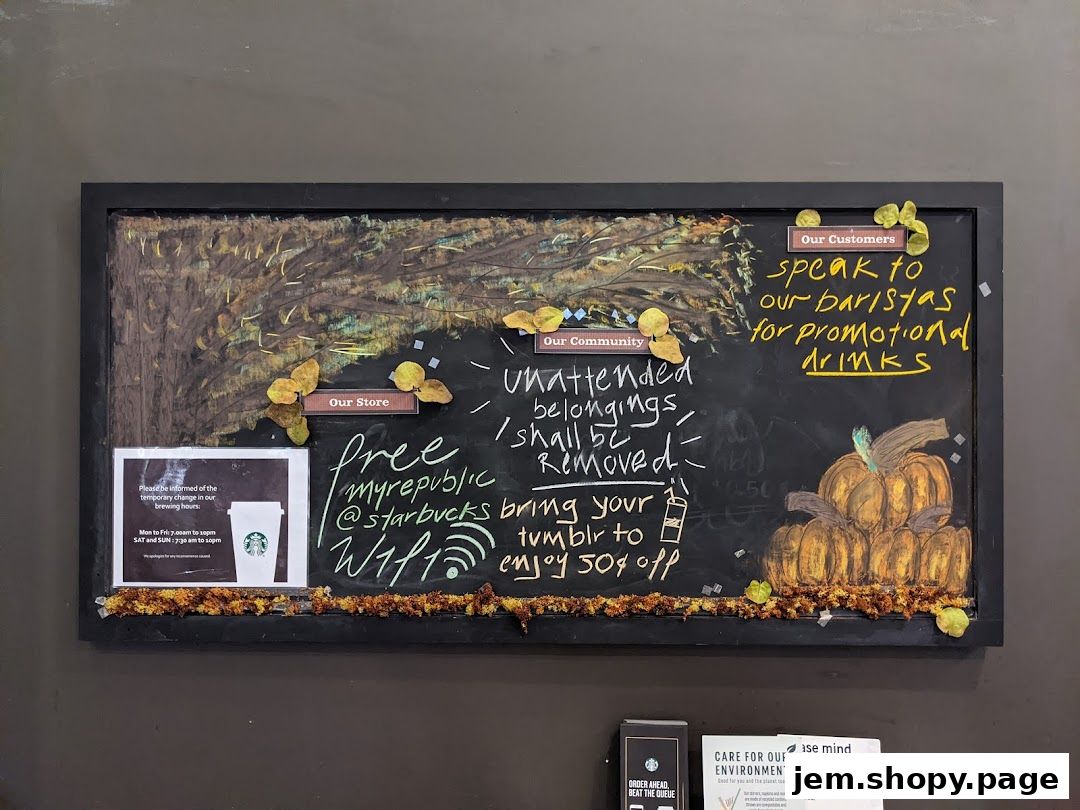 Our Customers
speak to
our baristas
for promotional
drinks
Our Community
unattended
belongings
shall be
Removed
bring your
tumblr to
enjoy 50¢ off
Our Store
free
myrepublic
@starbucks
Wifi
Please be informed of the
temporary change in our
brewing hours:
Mon to Fri: 7.00am to 10pm
SAT and SUN : 7:30 am to 10pm
We apologies for any inconvenience caused
ORDER AHEAD,
BEAT THE QUEUE
CARE FOR OUR
ENVIRONMENT
Good for you and the planet too
ase mind
jem.shopy.page